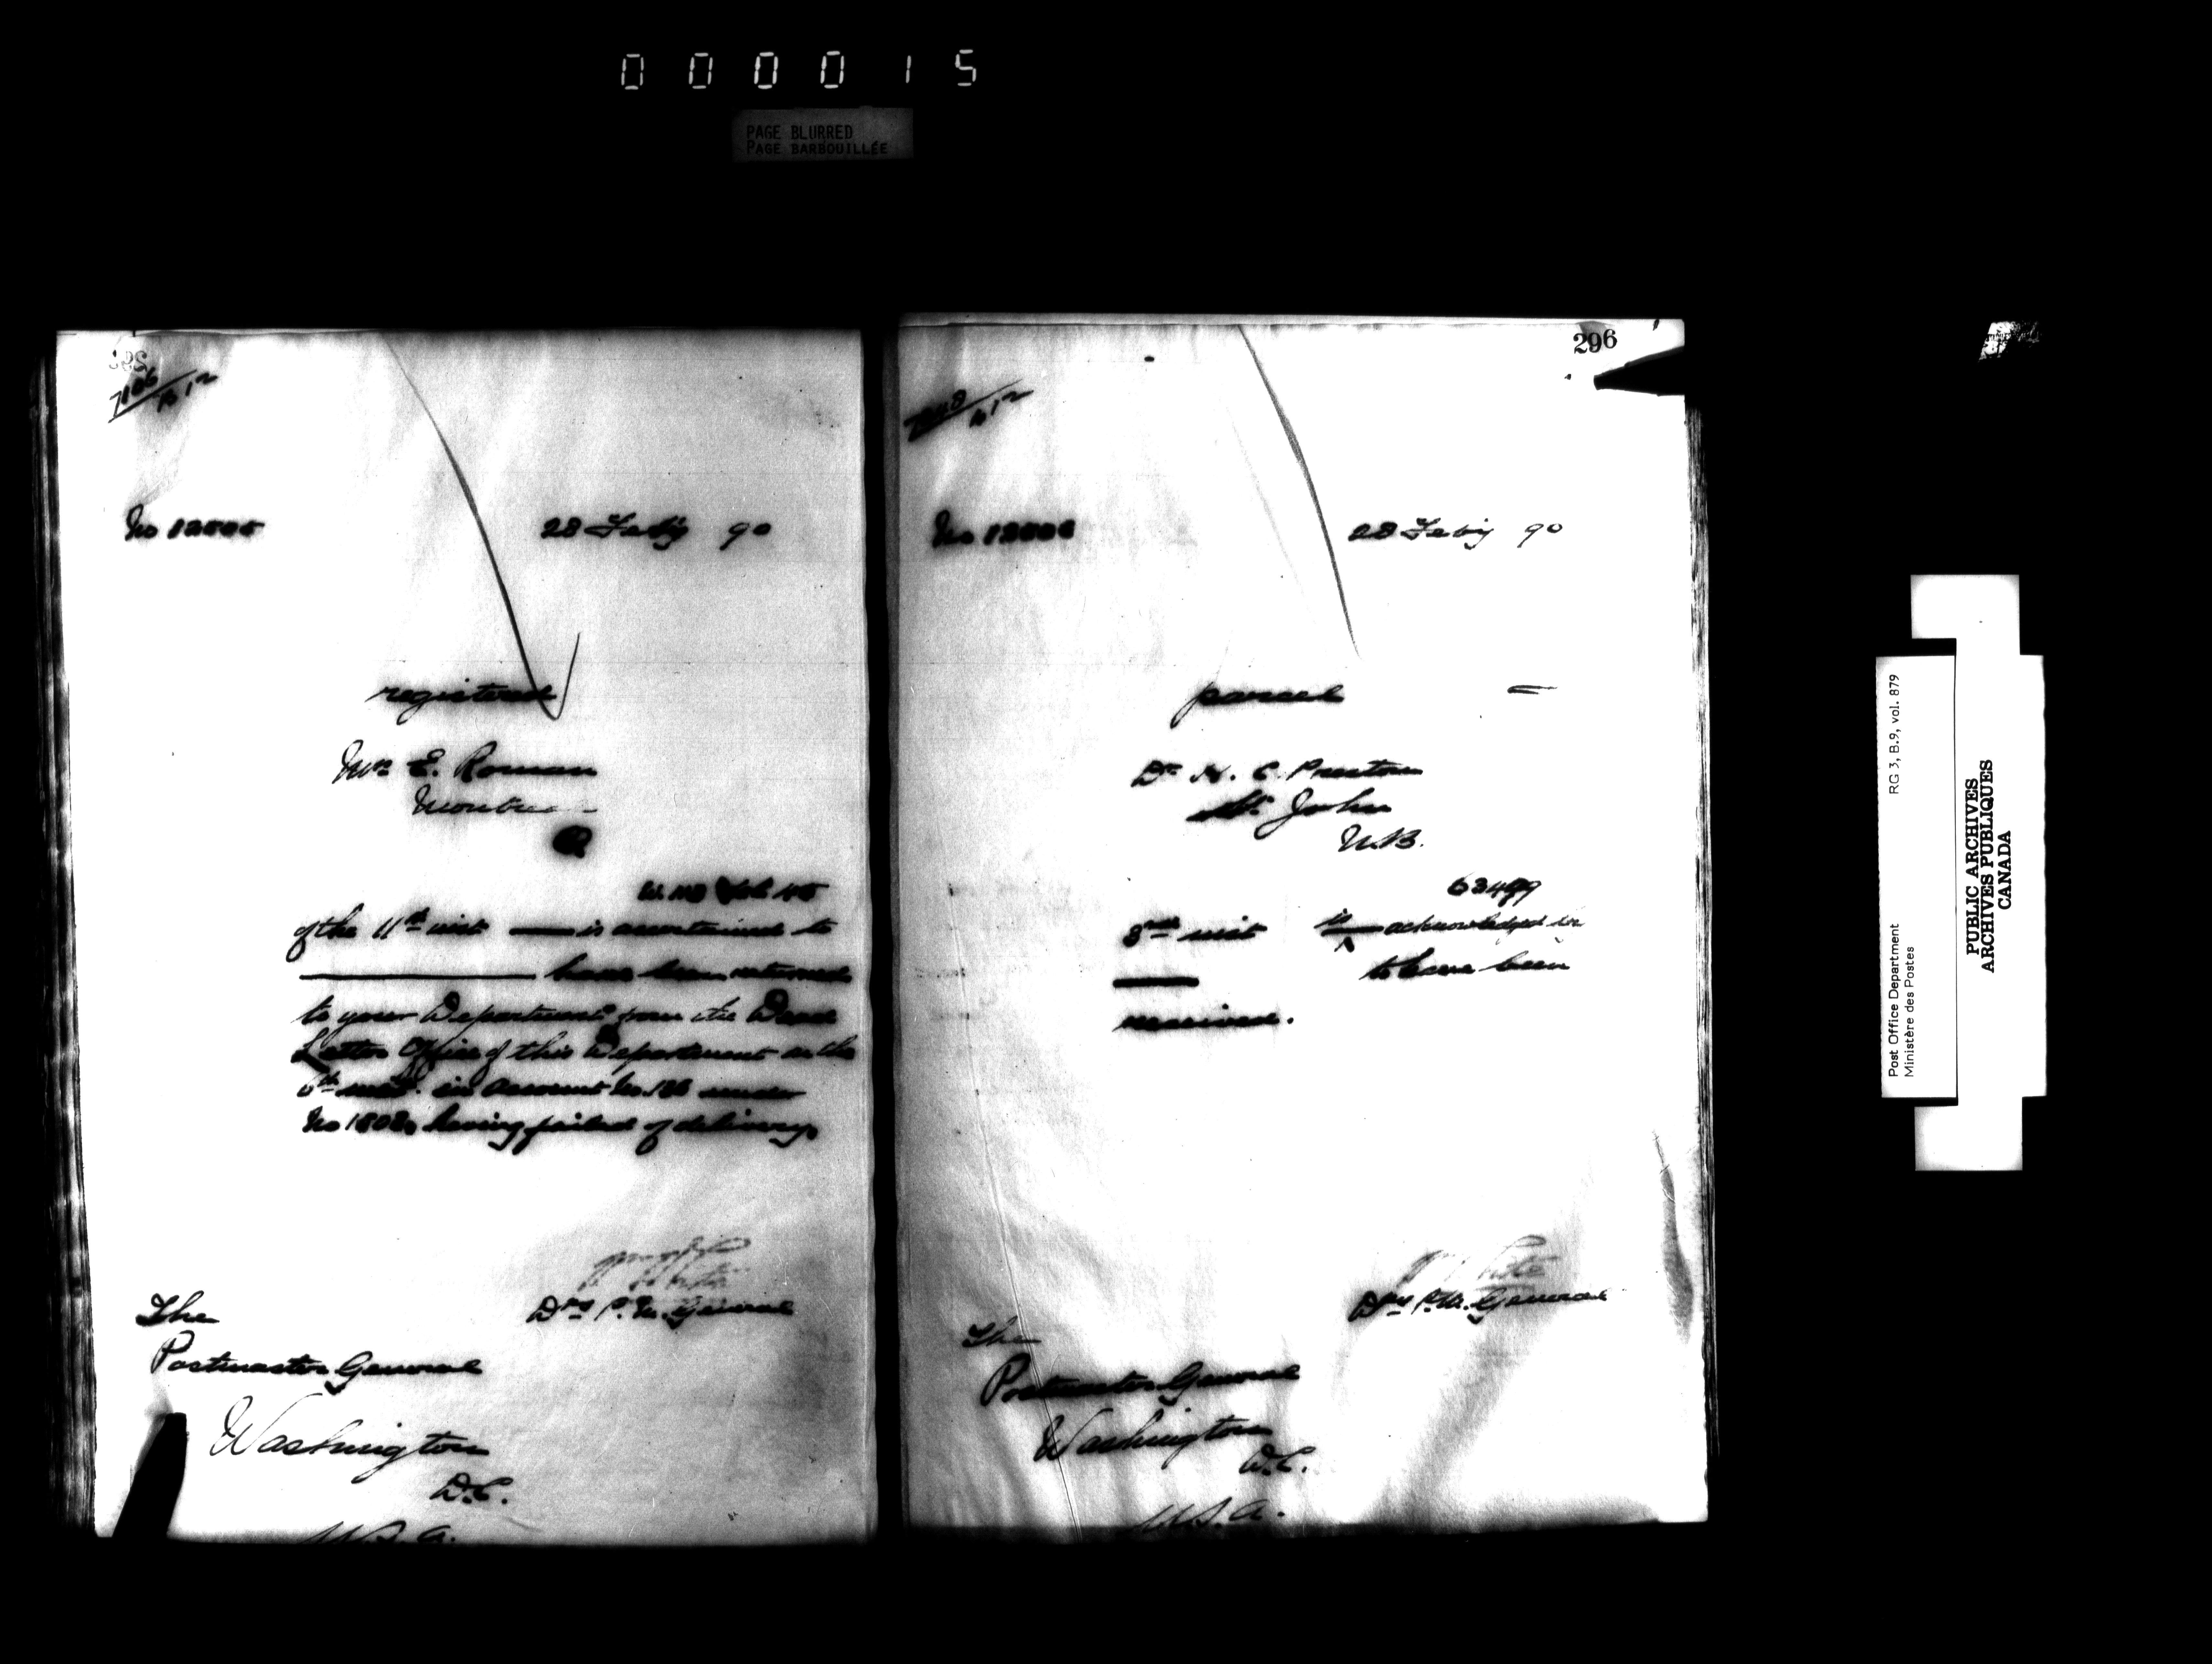 000015
PAGE BLURRED
PAGE BARBOUILLÉE
No
28 Feb'y 90
registered
Mrs E. Roman
Montreal
Q
of the 11th inst — is ascertained to
have been returned
to your Department from the Dead
Letter Office of this Department on the
in account No. 126 under
No having failed of delivery.
Dpy P. M. General
The
Postmaster General
Washington
D.C.
U.S.A.
296
No
28 Feby 90
parcel
Dr H. C. Preston
St. John
N.B.
63479
3rd inst is acknowledged
to have been
received.
White
Dpy P.M. General
The
Postmaster General
Washington
D.C.
U.S.A.
Post Office Department
Ministère des Postes
RG 3, B.9, vol. 879
PUBLIC ARCHIVES
ARCHIVES PUBLIQUES
CANADA